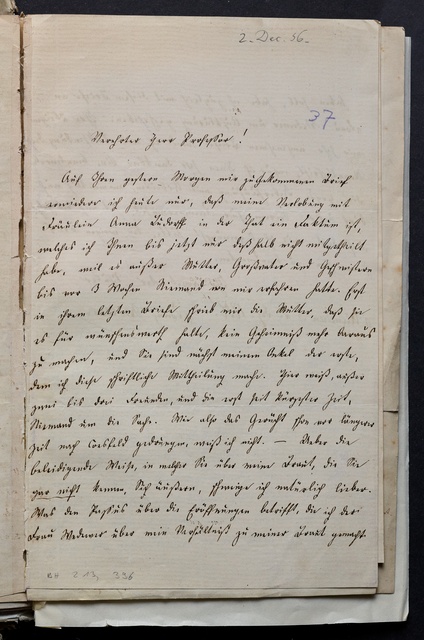 2. Dec. 56.
37
Verehrter Herr Professor!
Auf Ihren gestern Morgen mir zugekommenen Brief
erwiedere ich heute nur, daß meine Verlobung mit
Fräulein Anna in der That ein Faktum ist,
welches ich Ihnen bis jetzt nur deßhalb nicht mitgetheilt
habe, weil es außer Mutter, Großvater und Geschwistern
bis vor 3 Wochen Niemand von mir erfahren hatte. Erst
in ihrem letzten Briefe schrieb mir die Mutter, daß sie
es für wünschenswerth halte, kein Geheimniß mehr daraus
zu machen, und Sie sind nächst meinem Onkel der erste,
dem ich diese schriftliche Mittheilung mache. Hier weiß, außer
zwei bis drei Freunden, und die erst seit kürzester Zeit,
Niemand um die Sache. Wie also das Gerücht schon vor längerer
Zeit nach Coesfeld gedrungen, weiß ich nicht. — Ueber die
beleidigende Weise, in welcher Sie über meine Braut, die Sie
gar nicht kennen, Sich äußern, schweige ich natürlich lieber.
Was den Passus über die Eröffnungen betrifft, die ich der
Frau über mein Verhältniß zu meiner Braut gemacht